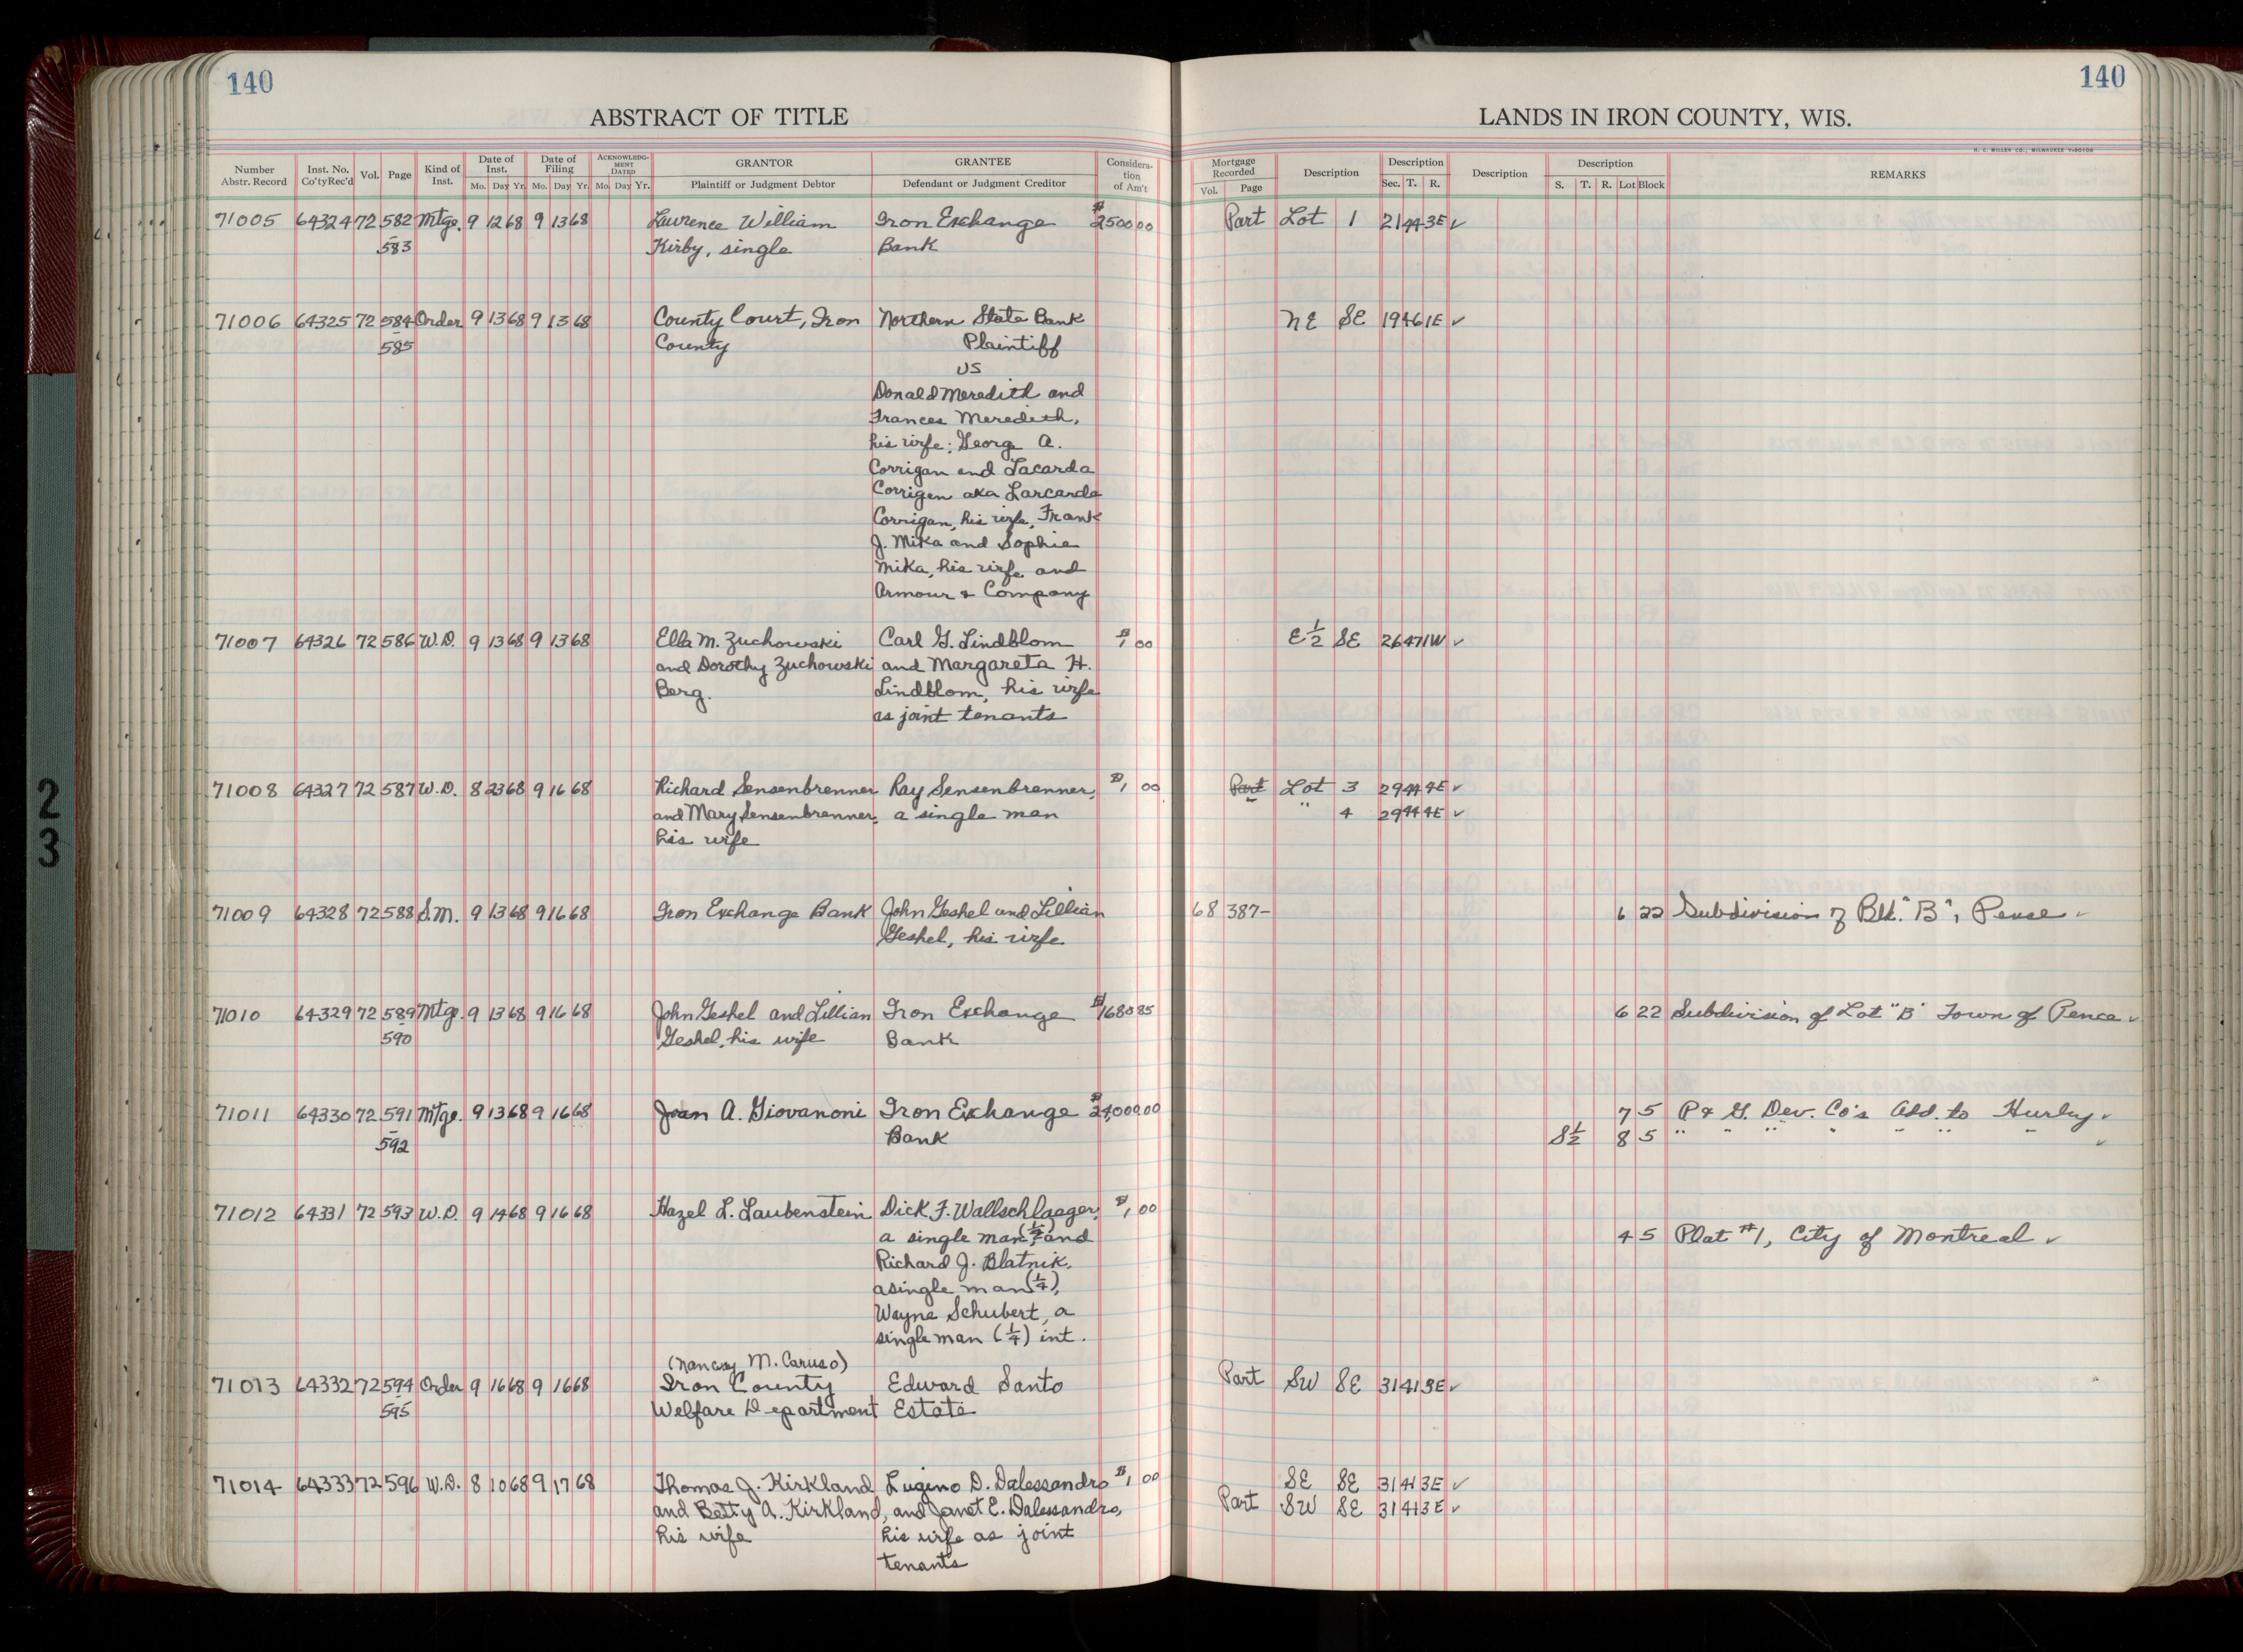 140
ABSTRACT OF TITLE
Number Abstr. Record | Inst. No. Co'ty Rec'd | Vol. | Page | Kind of Inst. | Date of Inst. Mo. Day Yr. | Date of Filing Mo. Day Yr. | ACKNOWLEDGMENT DATED Mo. Day Yr. | GRANTOR Plaintiff or Judgment Debtor | GRANTEE Defendant or Judgment Creditor | Consideration of Am't
140
LANDS IN IRON COUNTY, WIS.
H. C. MILLER CO., MILWAUKEE
Mortgage Recorded Vol. Page | Description | Description Sec. T. R. | Description | Description S. T. R. Lot Block | REMARKS
71005 64324 72 582 Mtge. 9 12 68 9 13 68 Lawrence William Iron Exchange $2500 00 Part Lot 1 21 44 3E ✓
583 Kirby, single Bank
71006 64325 72 584 Order 9 13 68 9 13 68 County Court, Iron Northern State Bank NE SE 19 46 1E ✓
585 County Plaintiff
vs
Donald Meredith and
Frances Meredith,
his wife; Georg A.
Corrigan and Lacarda
Corrigen aka Larcarda
Corrigan, his wife, Frank
J. Mika and Sophie
Mika, his wife and
Armour & Company
71007 64326 72 586 W.D. 9 13 68 9 13 68 Ella M. Zuchowski Carl G. Lindblom $1 00 E 1/2 SE 26 47 1W ✓
and Dorothy Zuchowski and Margareta H.
Berg. Lindblom, his wife
as joint tenants
71008 64327 72 587 W.D. 8 23 68 9 16 68 Richard Sensenbrenner Ray Sensenbrenner, $1 00 Part Lot 3 29 44 4E ✓
and Mary Sensenbrenner, a single man " 4 29 44 4E ✓
his wife
71009 64328 72 588 S.M. 9 13 68 9 16 68 Iron Exchange Bank John Geshel and Lillian 68 387- 6 22 Subdivision of Blk. "B", Pence ✓
Geshel, his wife
71010 64329 72 589 Mtge. 9 13 68 9 16 68 John Geshel and Lillian Iron Exchange $1680 85 6 22 Subdivision of Lot "B" Town of Pence ✓
590 Geshel, his wife Bank
71011 64330 72 591 Mtge. 9 13 68 9 16 68 Joan A. Giovanoni Iron Exchange $24,000 00 7 5 P & G. Dev. Co's Add. to Hurley ✓
592 Bank S 1/2 8 5 " " " " " " " ✓
71012 64331 72 593 W.D. 9 14 68 9 16 68 Hazel L. Laubenstein Dick F. Wallschlaeger, $1 00
a single man (1/2) and 4 5 Plat #1, City of Montreal ✓
Richard J. Blatnik,
a single man (1/4),
Wayne Schubert, a
single man (1/4) int.
(Nancy M. Caruso)
71013 64332 72 594 Order 9 16 68 9 16 68 Iron County Edward Santo Part SW SE 31 41 3E ✓
595 Welfare Department Estate
71014 64333 72 596 W.D. 8 10 68 9 17 68 Thomas J. Kirkland Lugino D. Dalessandro $1 00 SE SE 31 41 3E ✓
and Betty A. Kirkland, and Janet E. Dalessandro, Part SW SE 31 41 3E ✓
his wife his wife as joint
tenants
2
3